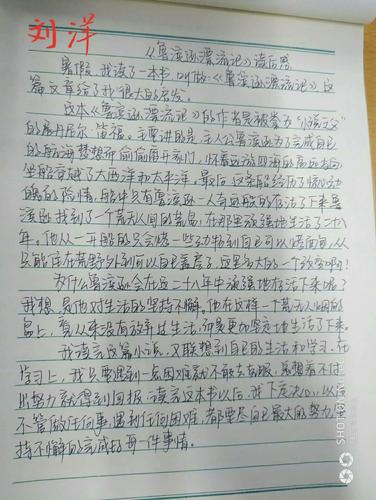 刘洋
《鲁滨逊漂流记》读后感
暑假,我读了一本书,叫做《鲁滨逊漂流记》这
篇文章给了我很大的启发。
这本《鲁滨逊漂流记》的作者是被誉为“小说之父”
的展丹尼尔·笛福。主要讲的是:主人公鲁滨逊为了完成自己
的航海梦想而偷偷离开家门,怀着远游四海的高远志向
坐船穿越了大西洋和太平洋。最后这条船经历了惊心动
魄的险情,船中只有鲁滨逊一人奇迹般的存活了下来鲁
滨逊找到了个荒无人间的荒岛,在那里顽强地生活了二十八
年。他从一开始的只会做一些到自己可以烤面包,从
只能住在荒野外到可以自己盖房子,这是多大的一个改变啊!
为什么鲁滨逊会在这二十八年中顽强地存活下来呢?
我想:是他对生活的坚持不懈。他在这样一个荒无人烟的
岛上,看从来没有放弃过生活,而是更加坚定地生活了下来。
我读完这篇小说,又联想到自己的生活和学习。在
学习上,我只要遇到一点困难就不敢去克服,总想着不付
出努力就得到回报。读完这本书以后,我下定决心:以后
不管做任何事,遇到任何困难,都要尽自己最大的努力,坚
持不懈的完成好每一件事情。
SHOT ON